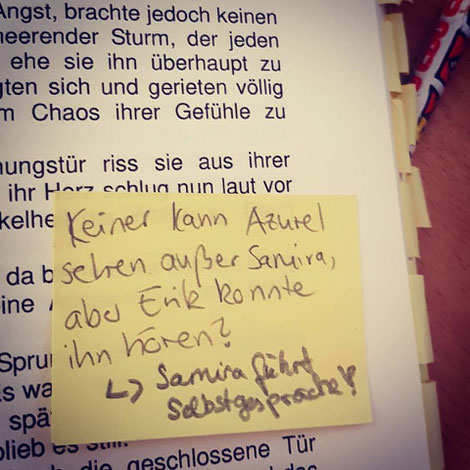 Angst, brachte jedoch keinen
heerender Sturm, der jeden
ehe sie ihn überhaupt zu
gten sich und gerieten völlig
m Chaos ihrer Gefühle zu
nungstür riss sie aus ihrer
ihr Herz schlug nun laut vor
kelhe
Keiner kann Azurel
sehen außer Samira,
aber Erik konnte
ihn hören?
↳ Samira führt
Selbstgespräche!?
da b
ine
Sprun
Es wa
spä
blieb es still.
die geschlossene Tür